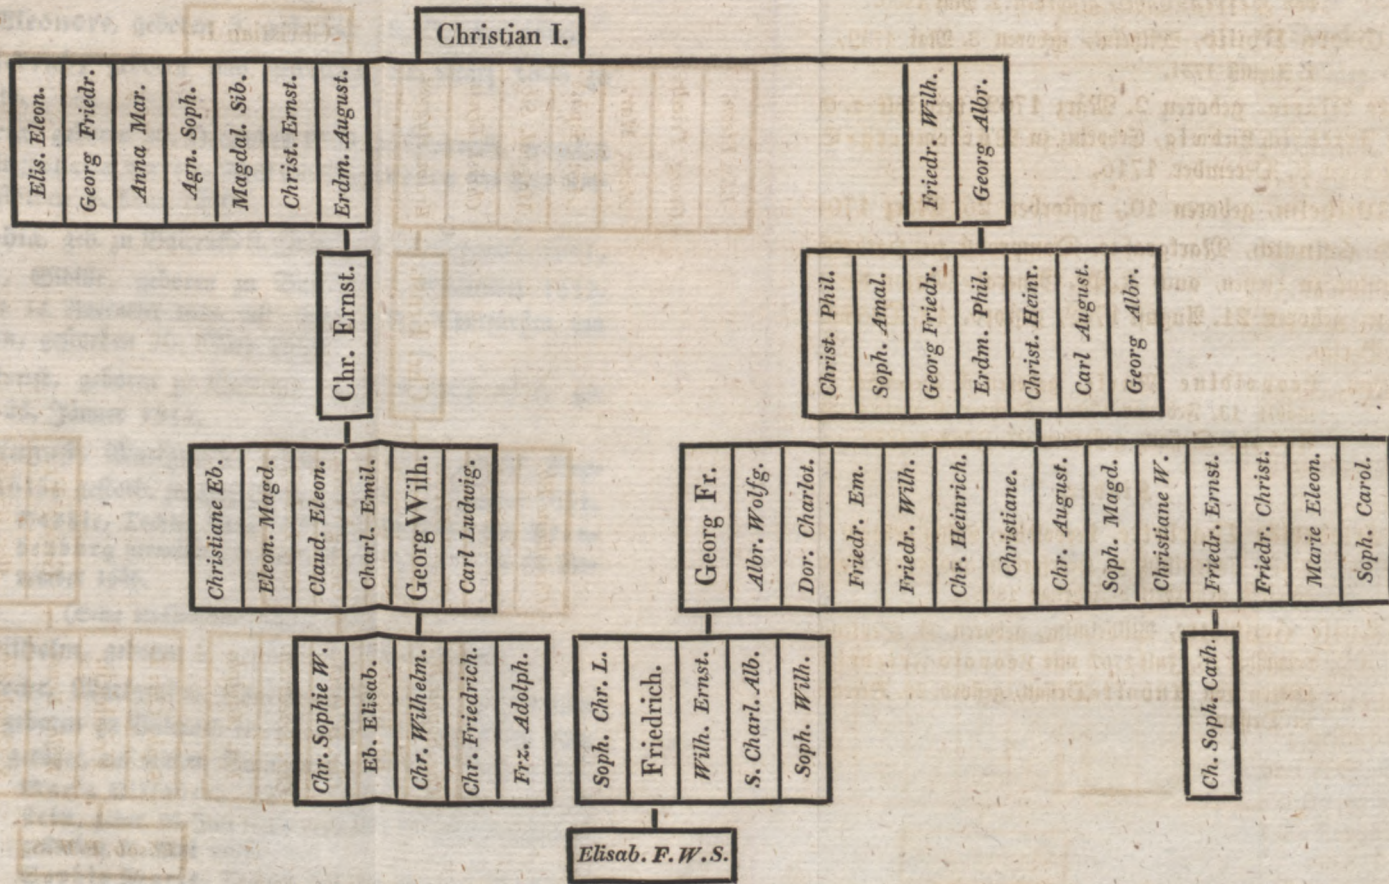 Christian I.
Elis. Eleon.
Georg Friedr.
Anna Mar.
Agn. Soph.
Magdal. Sib.
Christ. Ernst.
Erdm. August.
Friedr. Wilh.
Georg Albr.
Chr. Ernst.
Christ. Phil.
Soph. Amal.
Georg Friedr.
Erdm. Phil.
Christ. Heinr.
Carl August.
Georg Albr.
Christiane Eb.
Eleon. Magd.
Claud. Eleon.
Charl. Emil.
Georg Wilh.
Carl Ludwig.
Georg Fr.
Albr. Wolfg.
Dor. Charlot.
Friedr. Em.
Friedr. Wilh.
Chr. Heinrich.
Christiane.
Chr. August.
Soph. Magd.
Christiane W.
Friedr. Ernst.
Friedr. Christ.
Marie Eleon.
Soph. Carol.
Chr. Sophie W.
Eb. Elisab.
Chr. Wilhelm.
Chr. Friedrich.
Frz. Adolph.
Soph. Chr. L.
Friedrich.
Wilh. Ernst.
S. Charl. Alb.
Soph. Wilh.
Ch. Soph. Cath.
Elisab. F. W. S.